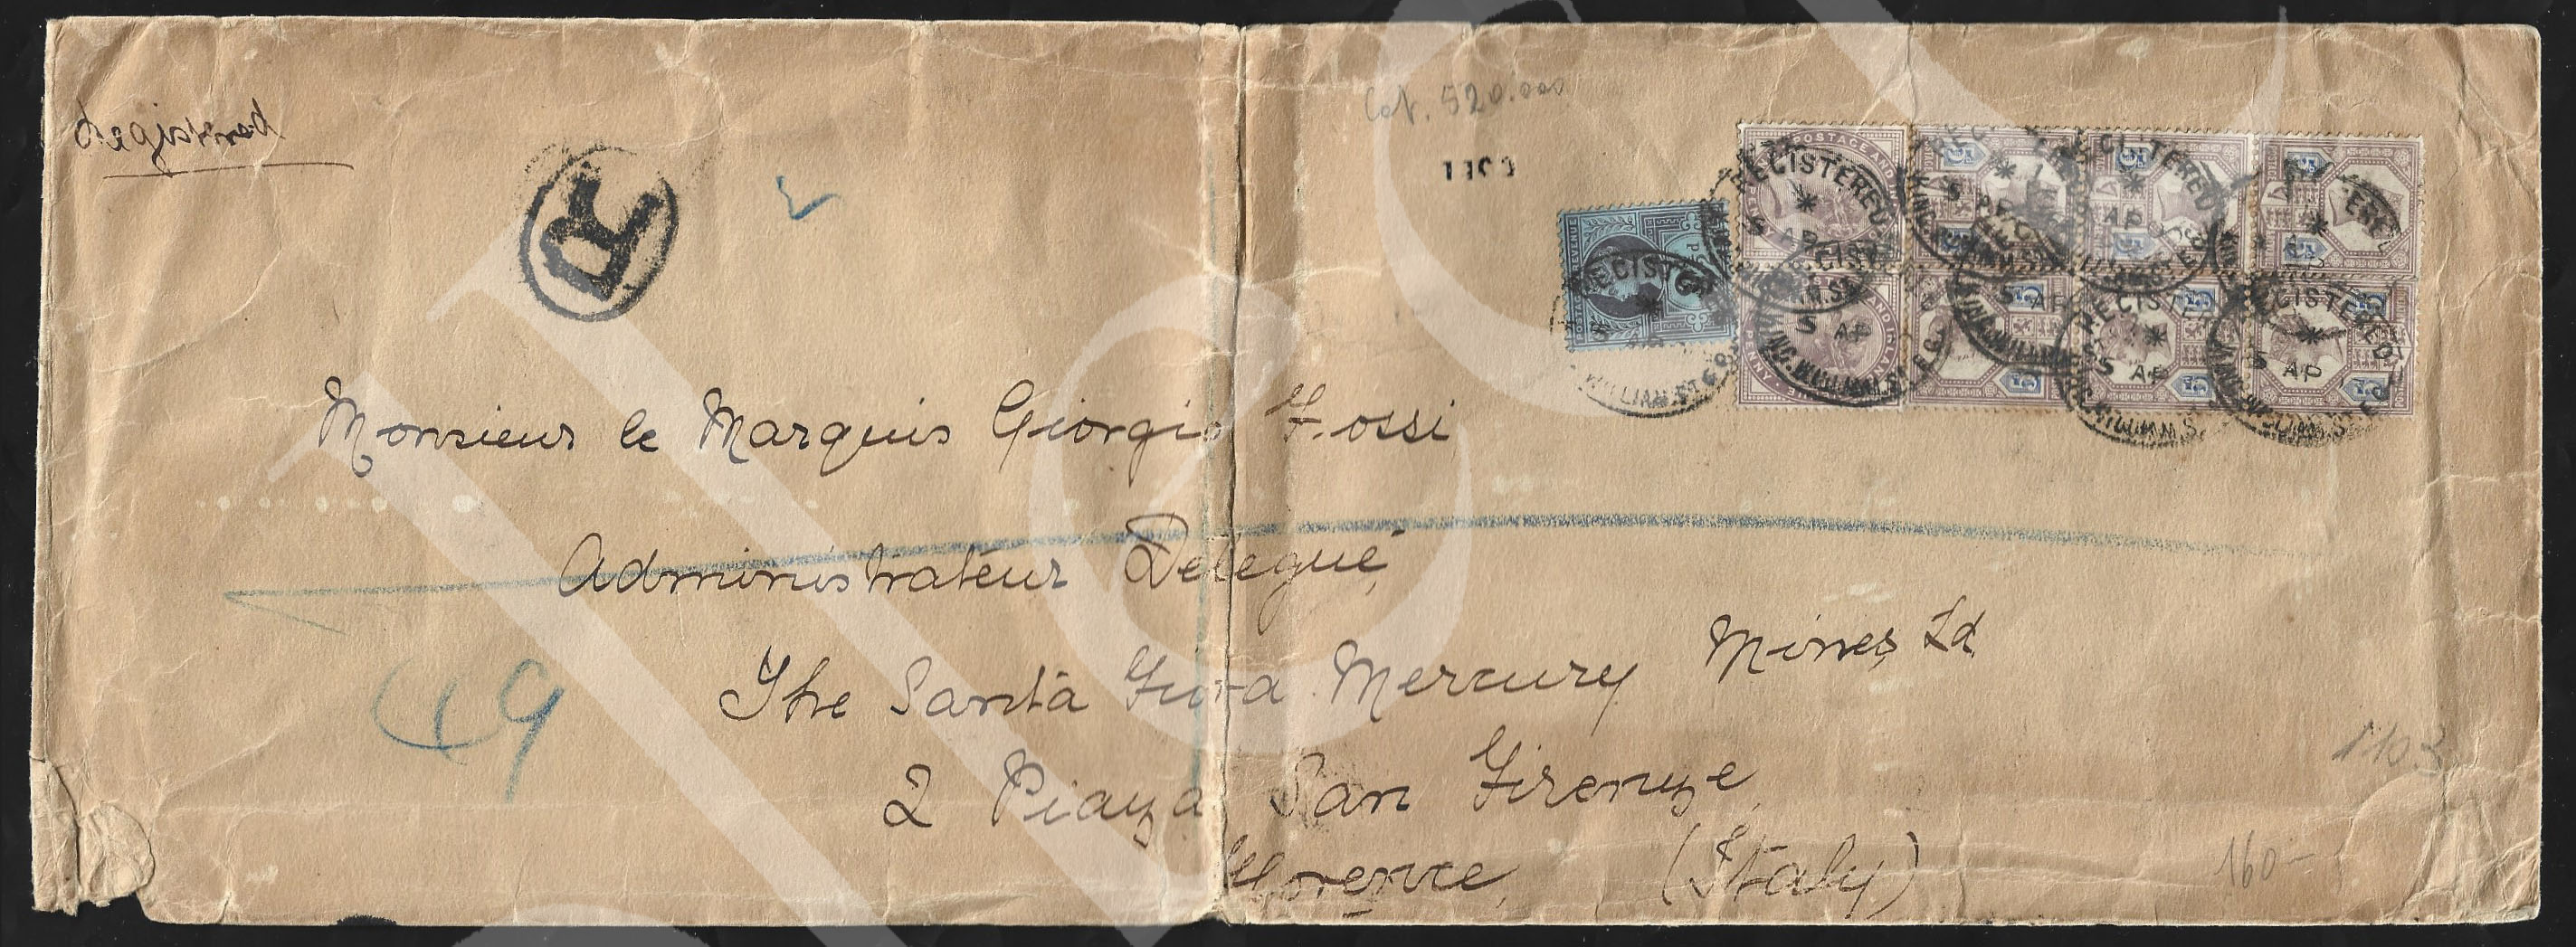 Registered
R
Cat. 520.000
1103
Monsieur le Marquis Giorgio F. ossi
Administrateur Delegué,
The Santa Fiora Mercury Mines Ld
2 Piazza San Firenze,
Florence, (Italy)
49
1103
160-
POSTAGE AND
REGISTERED
5 AP
REGISTERED
5 AP
KING WILLIAM ST